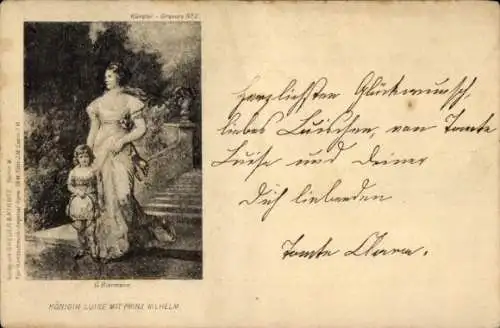 Künstler - Gravure No 2
G. Biermann
KÖNIGIN LUISE MIT PRINZ WILHELM
Herzlichsten Glückwunsch,
liebes Luischen, von Tante
Luise und Deiner
Dich liebenden
Tante Clara.